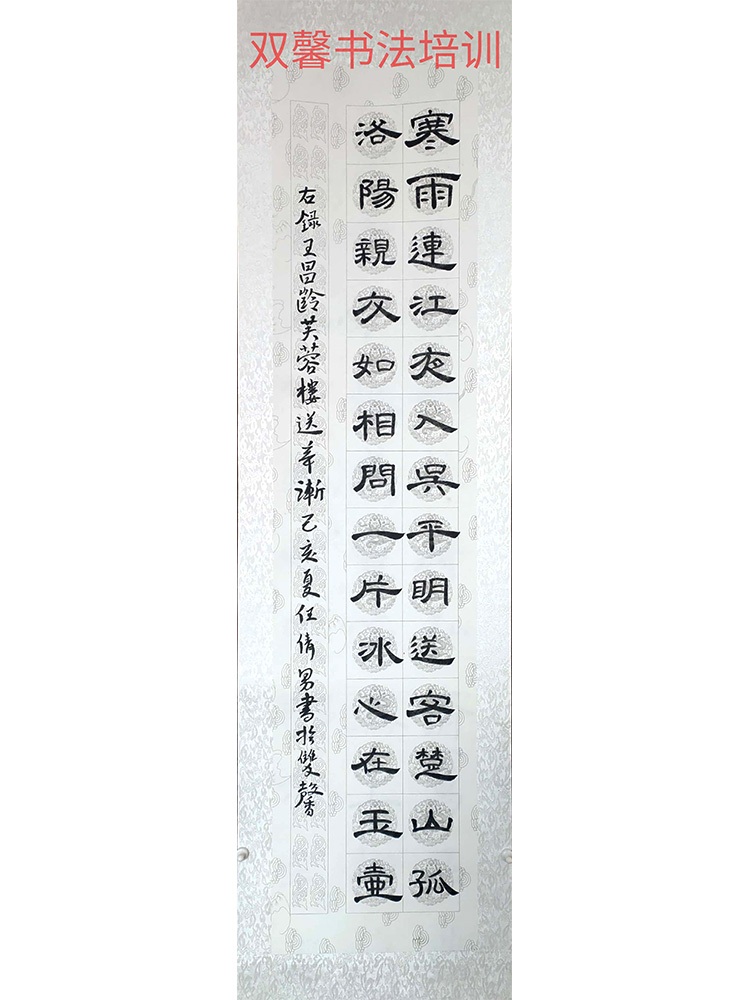 双馨书法培训
寒雨連江夜入吳平明送客楚山孤
洛陽親友如相問一片冰心在玉壺
右録王昌齡芙蓉樓送辛漸己亥夏任倩男書於雙馨